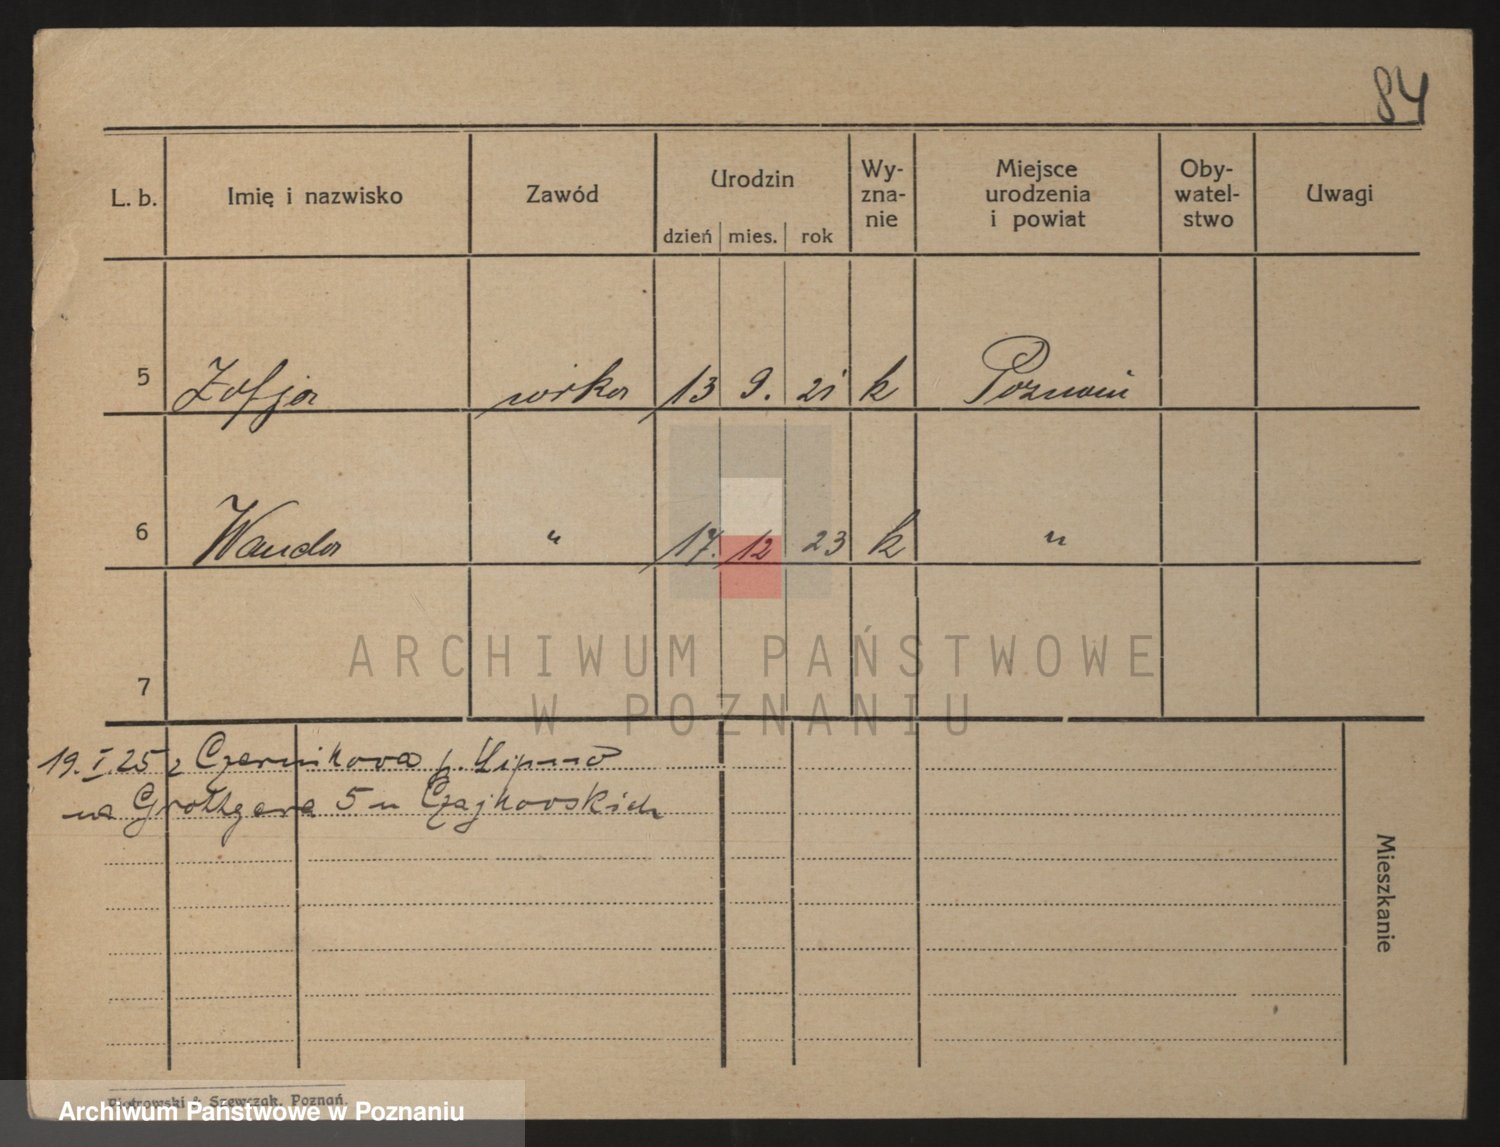 84
L. b. Imię i nazwisko Zawód Urodzin Wy-zna-nie Miejsce urodzenia i powiat Oby-watel-stwo Uwagi
dzień mies. rok
5 Zofja córka 13 9. 21 k Poznań
6 Wanda " 17. 12 23 k "
7
ARCHIWUM PAŃSTWOWE
W POZNANIU
19. I. 25 z Czernikowa p. Lipno
na Grottgera 5 u Czajkowskich
Mieszkanie
Piotrowski & Szewczak, Poznań.
Archiwum Państwowe w Poznaniu